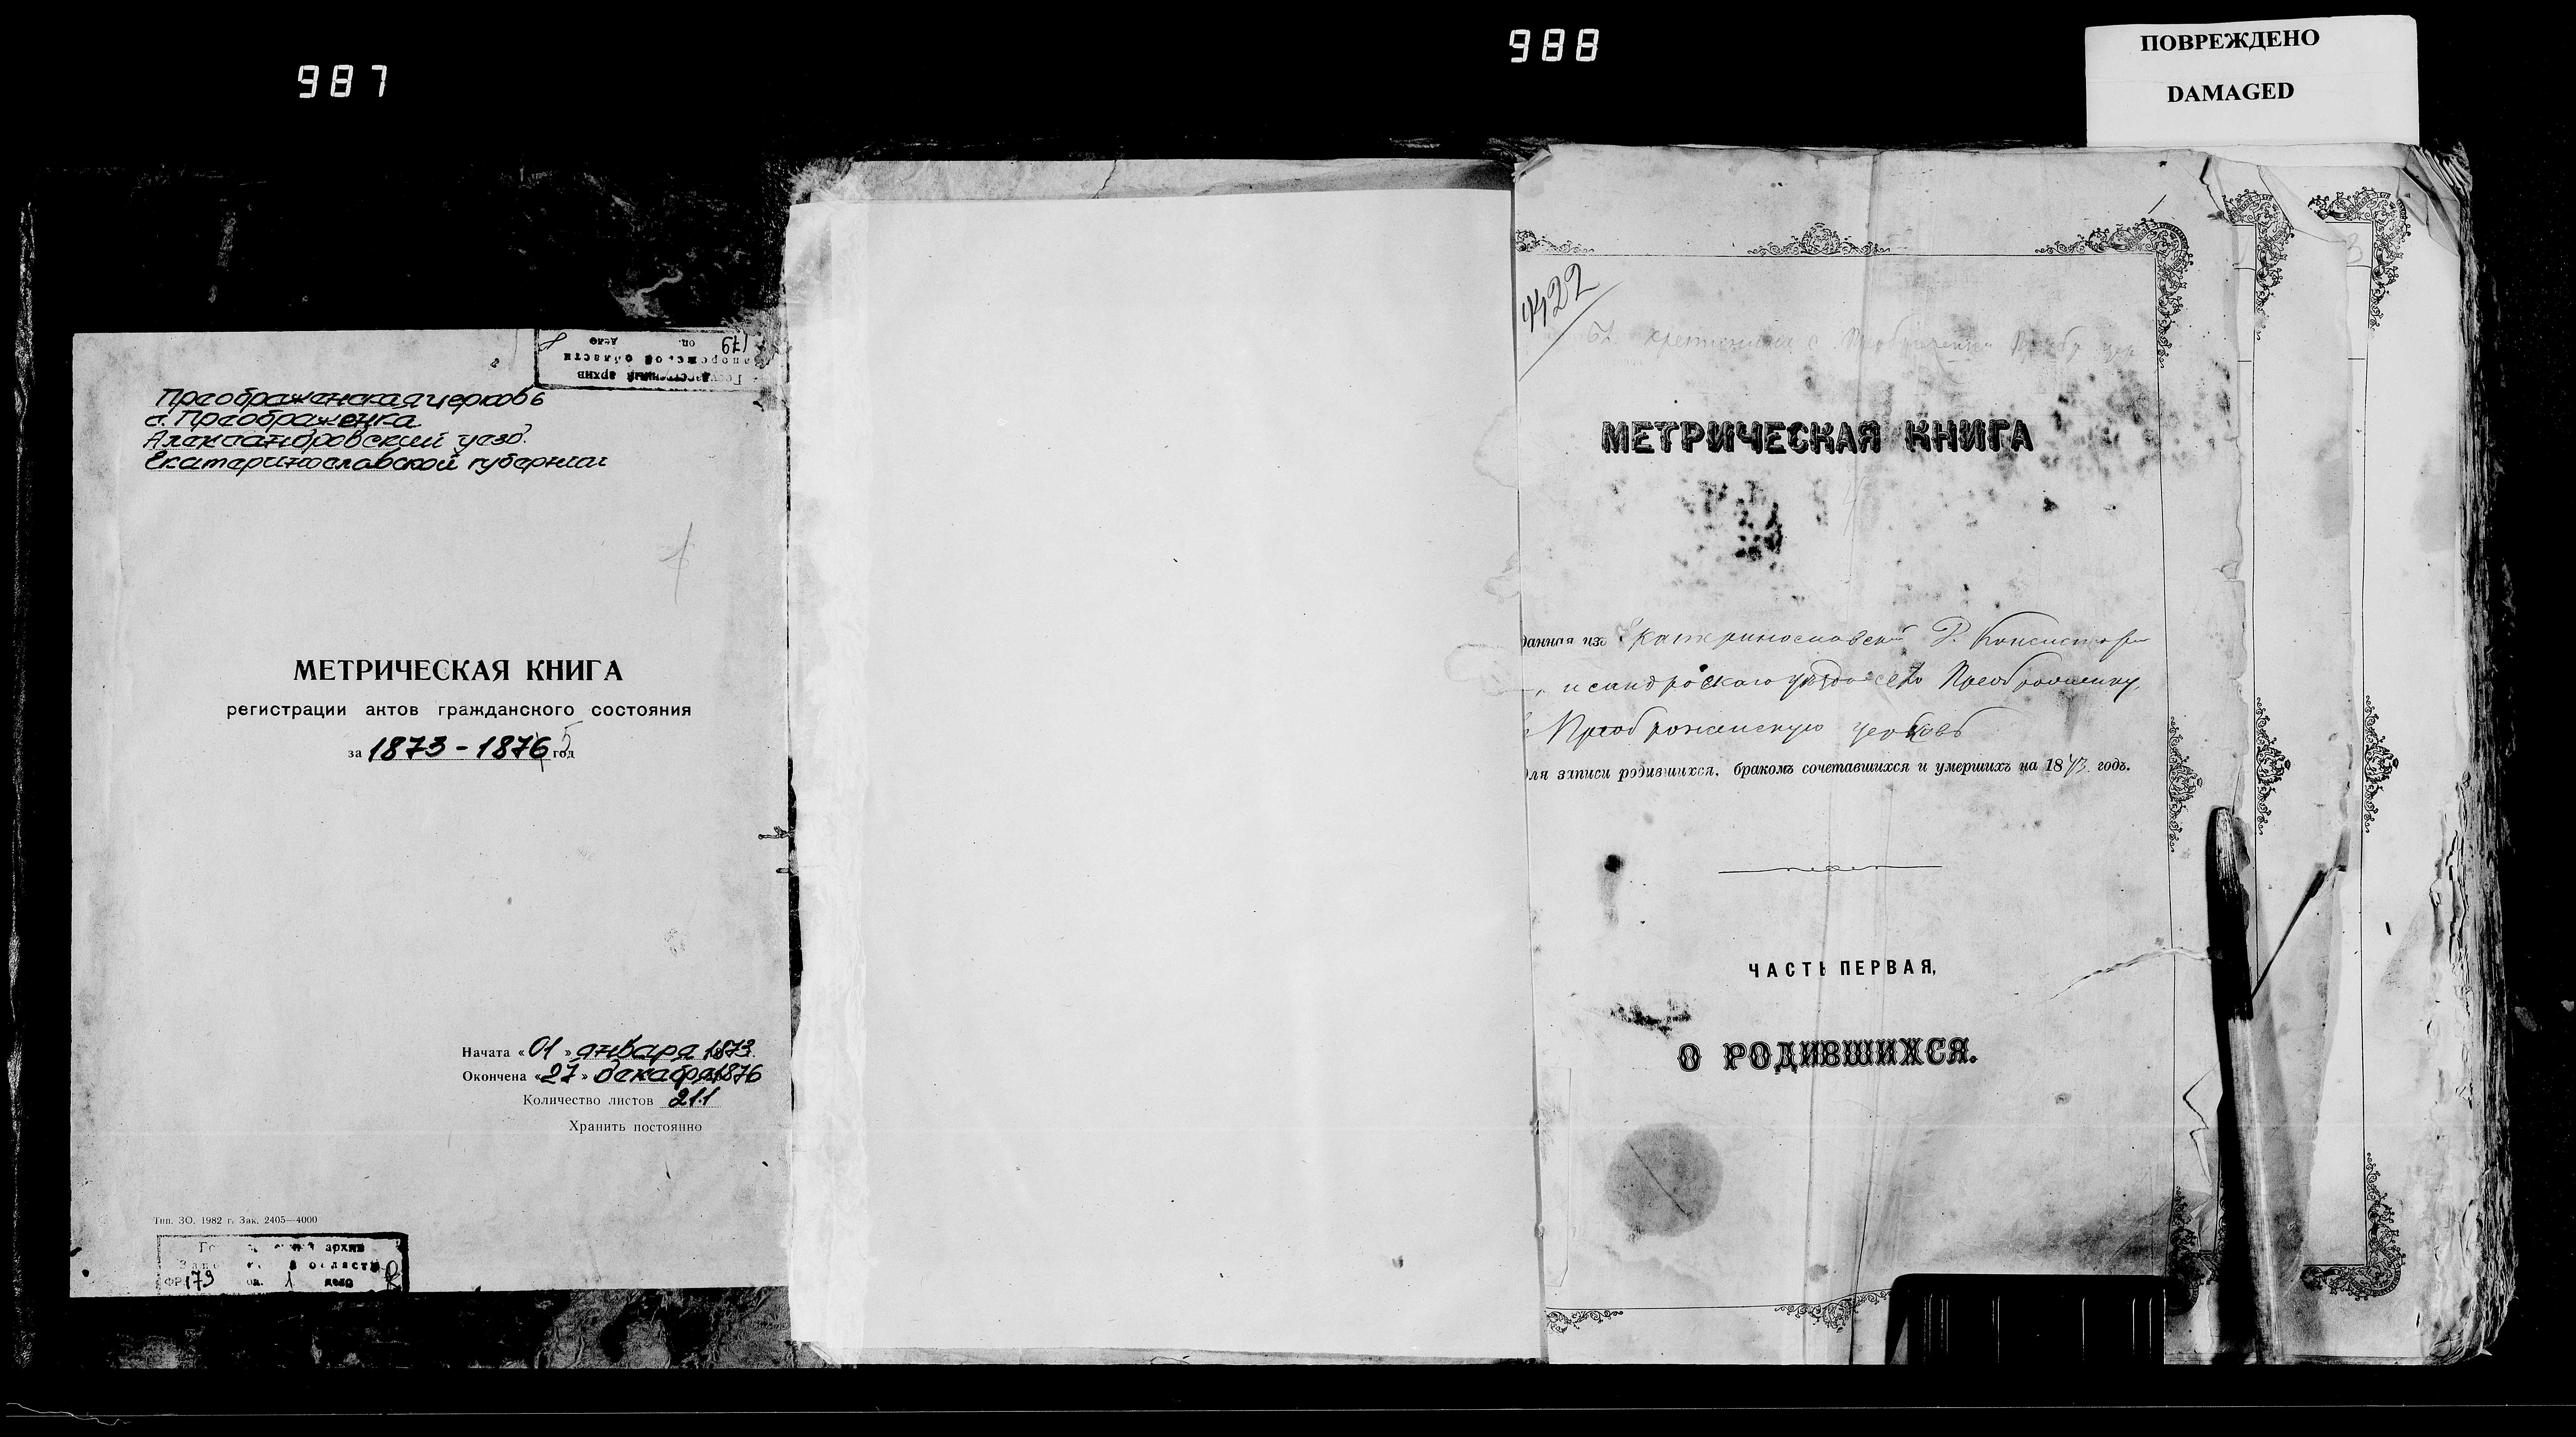 987
988
ПОВРЕЖДЕНО
DAMAGED
179
оп. дело
Запорожской области
Государственный архив
Преображенская церковь
с. Преображенка
Александровский уезд.
Екатеринославской губернии
МЕТРИЧЕСКАЯ КНИГА
регистрации актов гражданского состояния
за 1873 - 1876 год
5
Начата «01» января 1873.
Окончена «27» декабря 1876
Количество листов 211
Хранить постоянно
Тип. ЗО. 1982 г. Зак. 2405—4000
архив
области
179 оп. 1 дело
4422
3
МЕТРИЧЕСКАЯ КНИГА
данная изъ Екатеринославской Д. Консистори
уѣзда село Преображенку,
Преображенскую церковь
для записи родившихся, бракомъ сочетавшихся и умершихъ на 1873 годъ.
ЧАСТЬ ПЕРВАЯ,
О РОДИВШИХСЯ.